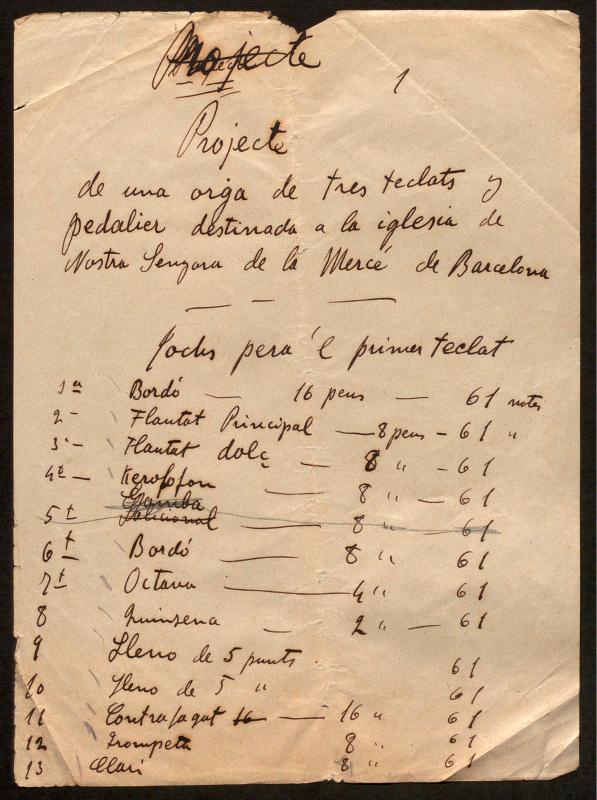 Projecte
1
Projecte
de una orga de tres teclats y
pedalier destinada a la iglesia de
Nostra Senyora de la Mercé de Barcelona
Jochs pera 'l primer teclat
1ª Bordó — 16 peus — 61 notes
2 — Flautat Principal — 8 peus — 61 "
3ª — Flautat dolç — 8 " — 61
4t — Kerofofon — 8 " — 61
Gamba
5t Salicional — 8 " — 61
6t Bordó — 8 " 61
7t Octava — 4 " 61
8 Quinsena — 2 " — 61
9 Lleno de 5 punts 61
10 Lleno de 5 " 61
11 Contrafagot 16 — 16 " 61
12 Trompeta 8 " 61
13 Clari 8 " 61